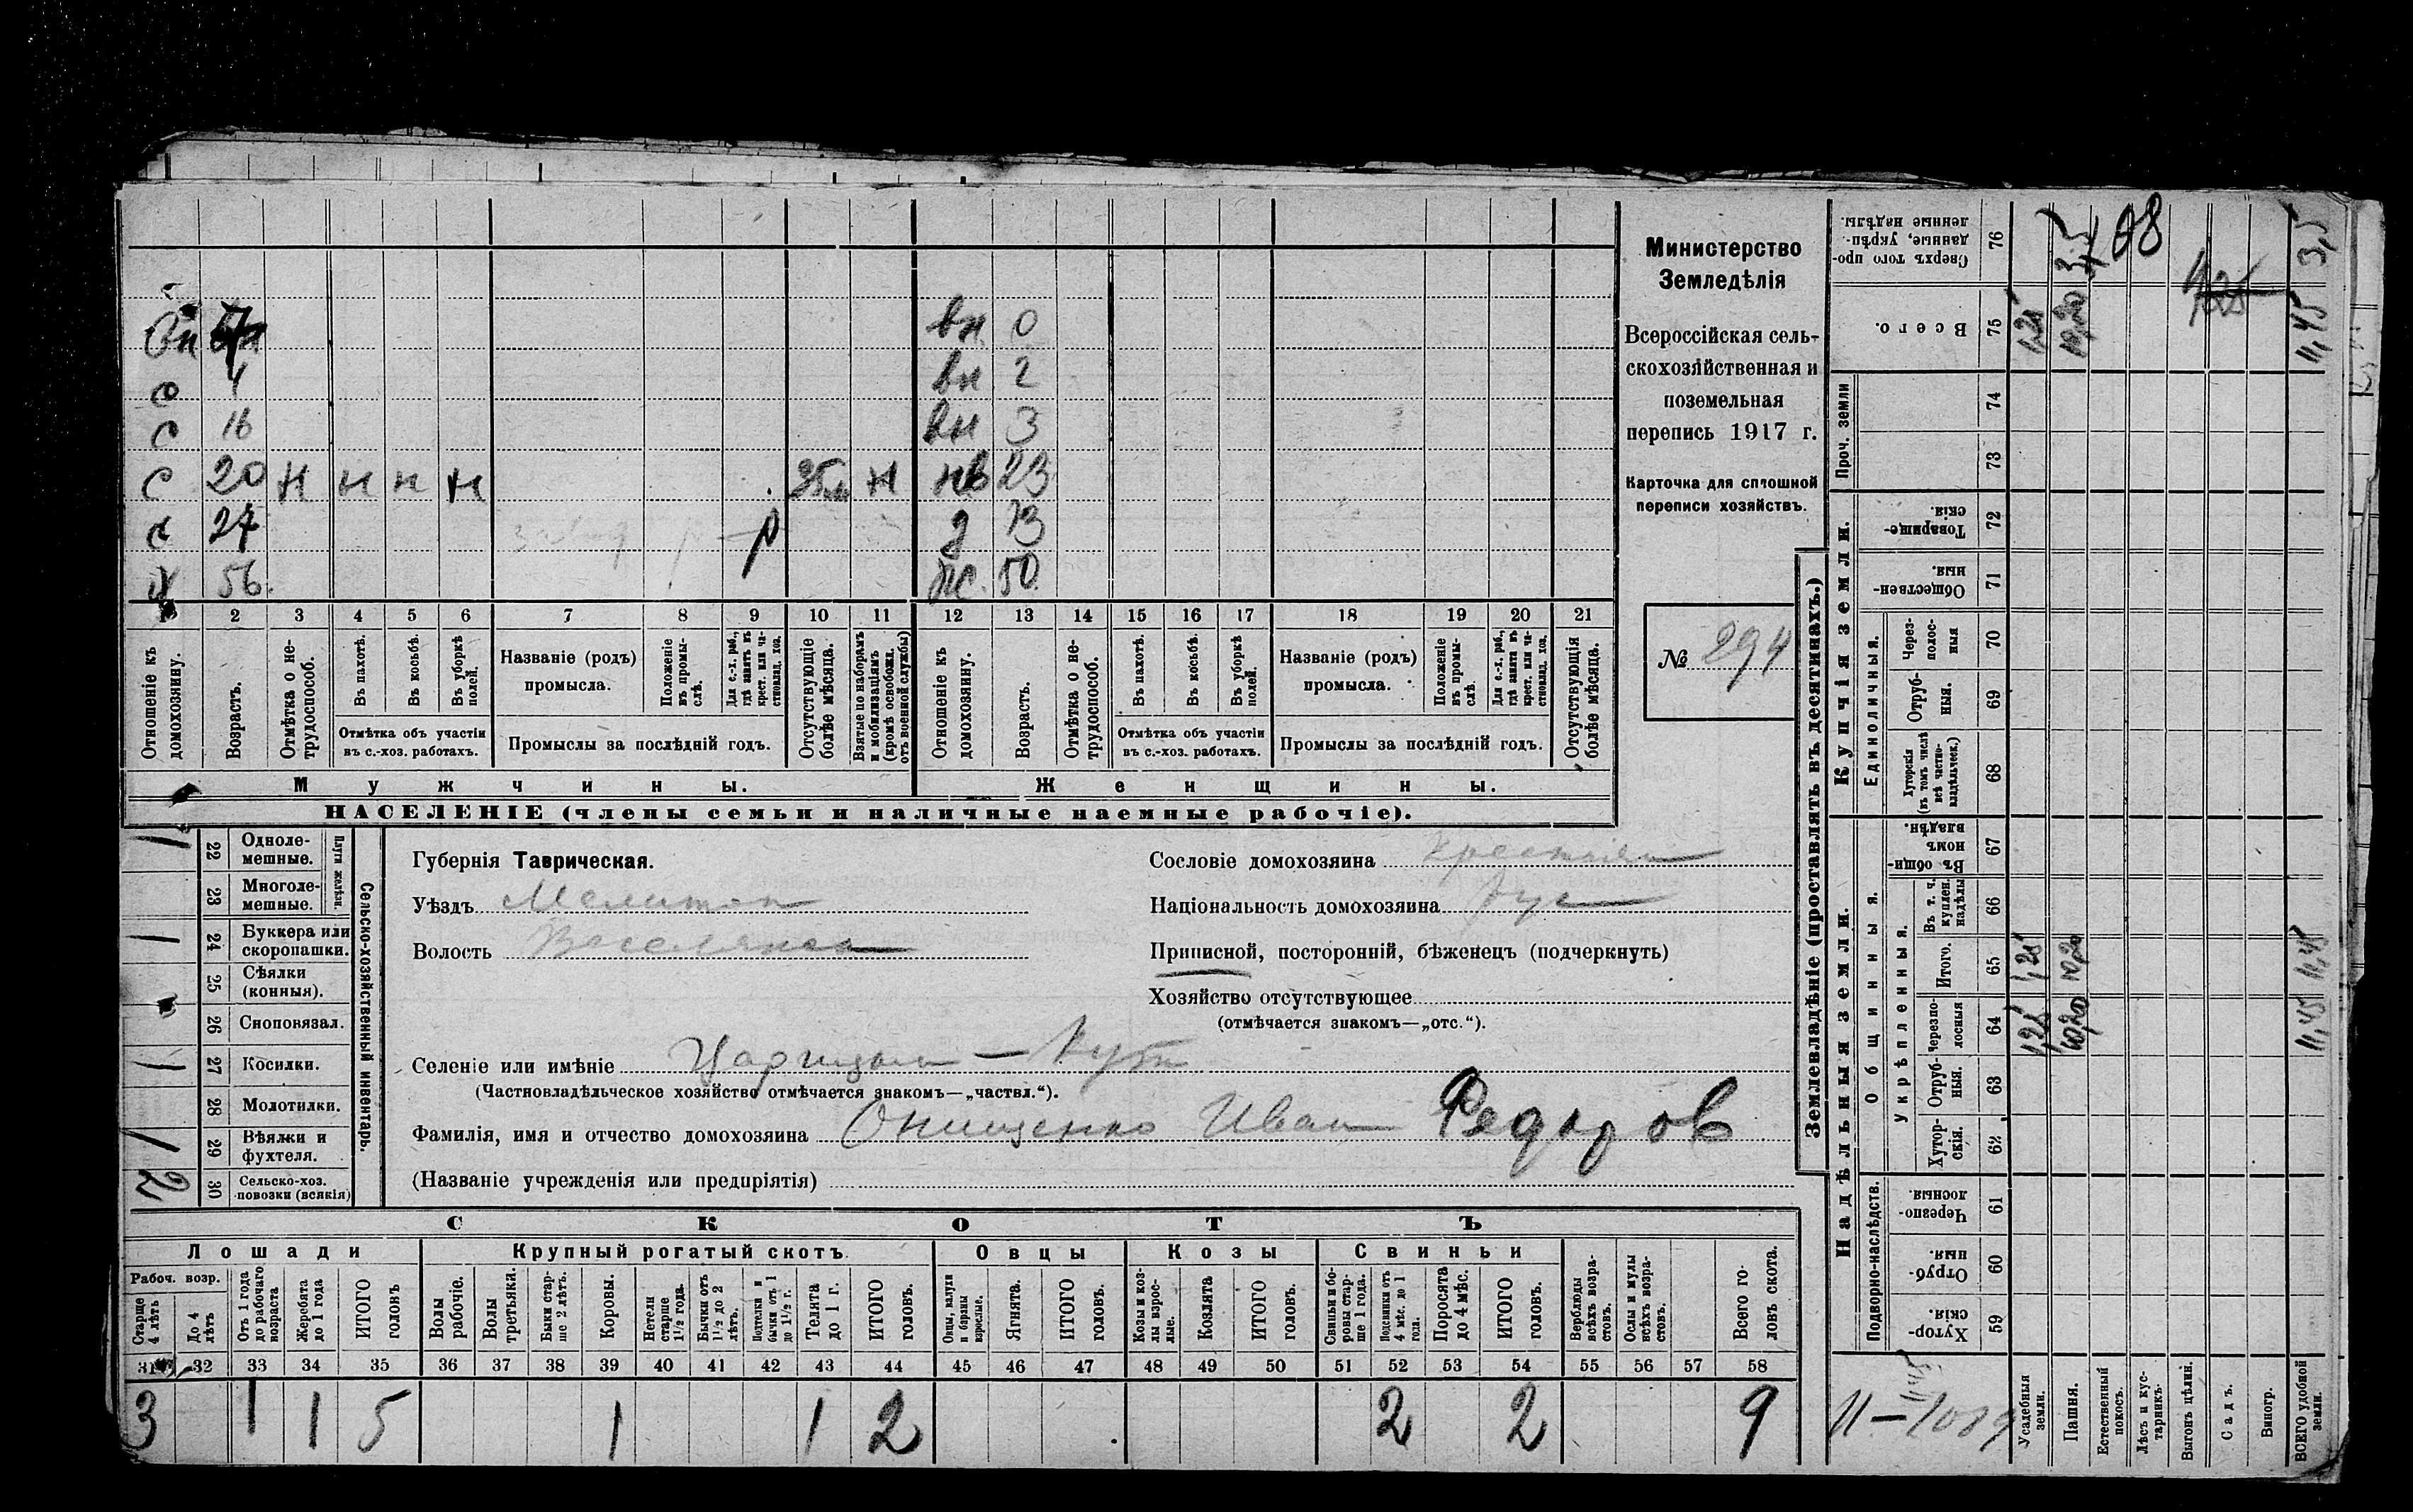 вн 0
с 4 вн 2
с 16 вн 3
с 20 н н н н н нв 23
с 27 р д 13
х 56. ж. 50.
1 2 3 4 5 6 7 8 9 10 11 12 13 14 15 16 17 18 19 20 21
Отношеніе къ домохозяину.
Возрастъ.
Отмѣтка о не-трудоспособ.
Въ пахотѣ.
Въ косьбѣ.
Въ уборкѣ полей.
Отмѣтка объ участіи въ с.-хоз. работахъ.
Названіе (родъ) промысла.
Положеніе въ промы-слѣ.
Для с.-х. раб., гдѣ занятъ въ крест. или ча-стновлад. хоз.
Промыслы за послѣдній годъ.
Отсутствующіе болѣе мѣсяца.
Взятые по наборамъ и мобилизаціямъ (кромѣ освобожд. отъ военной службы)
Отношеніе къ домохозяину.
Возрастъ.
Отмѣтка о не-трудоспособ.
Въ пахотѣ.
Въ косьбѣ.
Въ уборкѣ полей.
Отмѣтка объ участіи въ с.-хоз. работахъ.
Названіе (родъ) промысла.
Положеніе въ промы-слѣ.
Для с.-х. раб., гдѣ занята въ крест. или ча-стновлад. хоз.
Промыслы за послѣдній годъ.
Отсутствующія болѣе мѣсяца.
Мужчины. Женщины.
НАСЕЛЕНІЕ (члены семьи и наличные наемные рабочіе).
Министерство
Земледѣлія
Всероссійская сель-
скохозяйственная и
поземельная
перепись 1917 г.
Карточка для сплошной
переписи хозяйствъ.
№ 294
22 Одноле-мешные. 1
23 Многоле-мешные.
Плуги желѣзн.
24 Буккера или скоропашки. 1
25 Сѣялки (конныя).
26 Сноповязал.
27 Косилки. 1
28 Молотилки.
29 Вѣялки и фухтеля. 1
30 Сельско-хоз. повозки (всякія) 2
Сельско-хозяйственный инвентарь.
Губернія Таврическая.
Уѣздъ Мелитоп
Волость Веселянск
Селеніе или имѣніе Царицын — Кут
(Частновладѣльческое хозяйство отмѣчается знакомъ—„частвл.“).
Фамилія, имя и отчество домохозяина Онищенко Иван Федоров
(Названіе учрежденія или предпріятія)
Сословіе домохозяина Крестьян
Національность домохозяина рус
Приписной, посторонній, бѣженецъ (подчеркнуть)
Хозяйство отсутствующее
(отмѣчается знакомъ—„отс.“).
СКОТЪ
Лошади Крупный рогатый скотъ Овцы Козы Свиньи
Рабоч. возр.
Старше 4 лѣтъ
До 4 лѣтъ
Отъ 1 года до рабочаго возраста
Жеребята до 1 года
ИТОГО головъ
Волы рабочіе.
Волы третьяки.
Быки стар-ше 2 лѣтъ.
Коровы.
Нетели старше 1½ года.
Бычки отъ 1½ до 2 лѣтъ.
Подтелки и бычки отъ 1 до 1½ г.
Телята до 1 г.
ИТОГО головъ.
Овцы, валухи и бараны взрослые.
Ягнята.
ИТОГО головъ.
Козы и коз-лы взрос-лые.
Козлята
ИТОГО головъ.
Свиньи и бо-ровы стар-ше 1 года.
Подсвинки отъ 4 мѣс. до 1 года.
Поросята до 4 мѣс.
ИТОГО головъ.
Верблюды всѣхъ возра-стовъ.
Ослы и мулы всѣхъ возра-стовъ.
Всего го-ловъ скота.
31 32 33 34 35 36 37 38 39 40 41 42 43 44 45 46 47 48 49 50 51 52 53 54 55 56 57 58
3 1 1 5 1 1 2 2 2 9
Землевладѣніе (проставлять въ десятинахъ.)
Надѣльныя земли. Купчія земли. Проч. земли
Подворно-наслѣдств.
Общинныя.
Укрѣпленныя.
Единоличныя.
59 Хутор-скія
60 Отруб-ныя.
61 Черезпо-лосныя.
62 Хутор-скія.
63 Отруб-ныя.
64 Черезпо-лосныя 1,25 10,20 11,45
65 Итого. 1,25 10,20 11,45
66 Въ т. ч. куплен. надѣлы
67 Въ общин-номъ владѣн.
68 Хуторскія (въ томъ числѣ всѣ частно-владѣльчес.)
69 Отруб-ныя.
70 Через-полос-ныя
71 Обществен-ныя.
72 Товарище-скія.
73
74
75 Всего. 1,25 10,20 11,45
76 Сверхъ того про-данные, укрѣп-ленные надѣлы. 3,5 3,5
Усадебныя земли.
Пашня.
Естественный покосъ.
Лѣсъ и кус-тарникъ.
Выгонъ цѣлин.
Садъ.
Виногр.
ВСЕГО удобной земли.